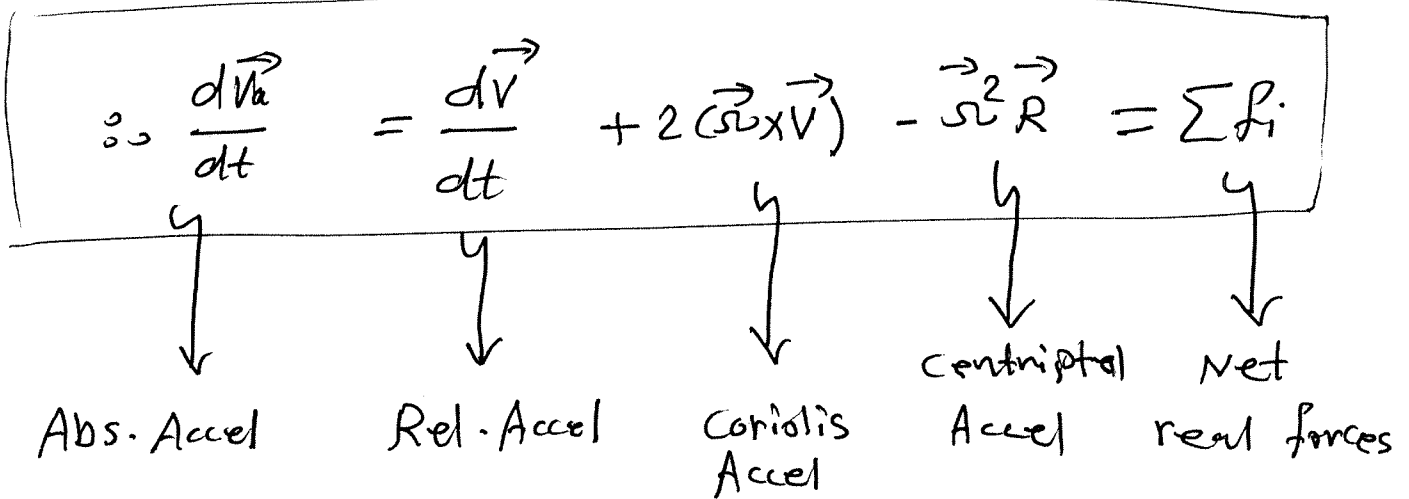 ∴ dV⃗a/dt = dV⃗/dt + 2(Ω⃗×V⃗) - Ω⃗²R⃗ = Σfi
Abs. Accel Rel. Accel Coriolis Accel Centriptal Accel Net real forces